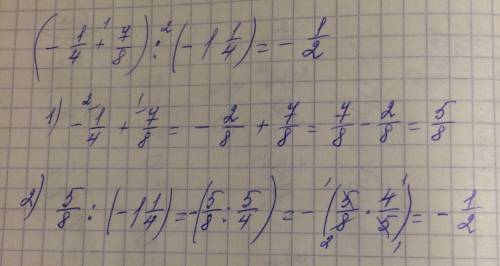 (-1/4 +¹ 7/8) :² (-1 1/4) = - 1/2
1) - ²1/4 + ¹7/8 = - 2/8 + 7/8 = 7/8 - 2/8 = 5/8
2) 5/8 : (-1 1/4) = -(5/8 : 5/4) = -(¹5/8₂ · 4¹/5₁) = - 1/2